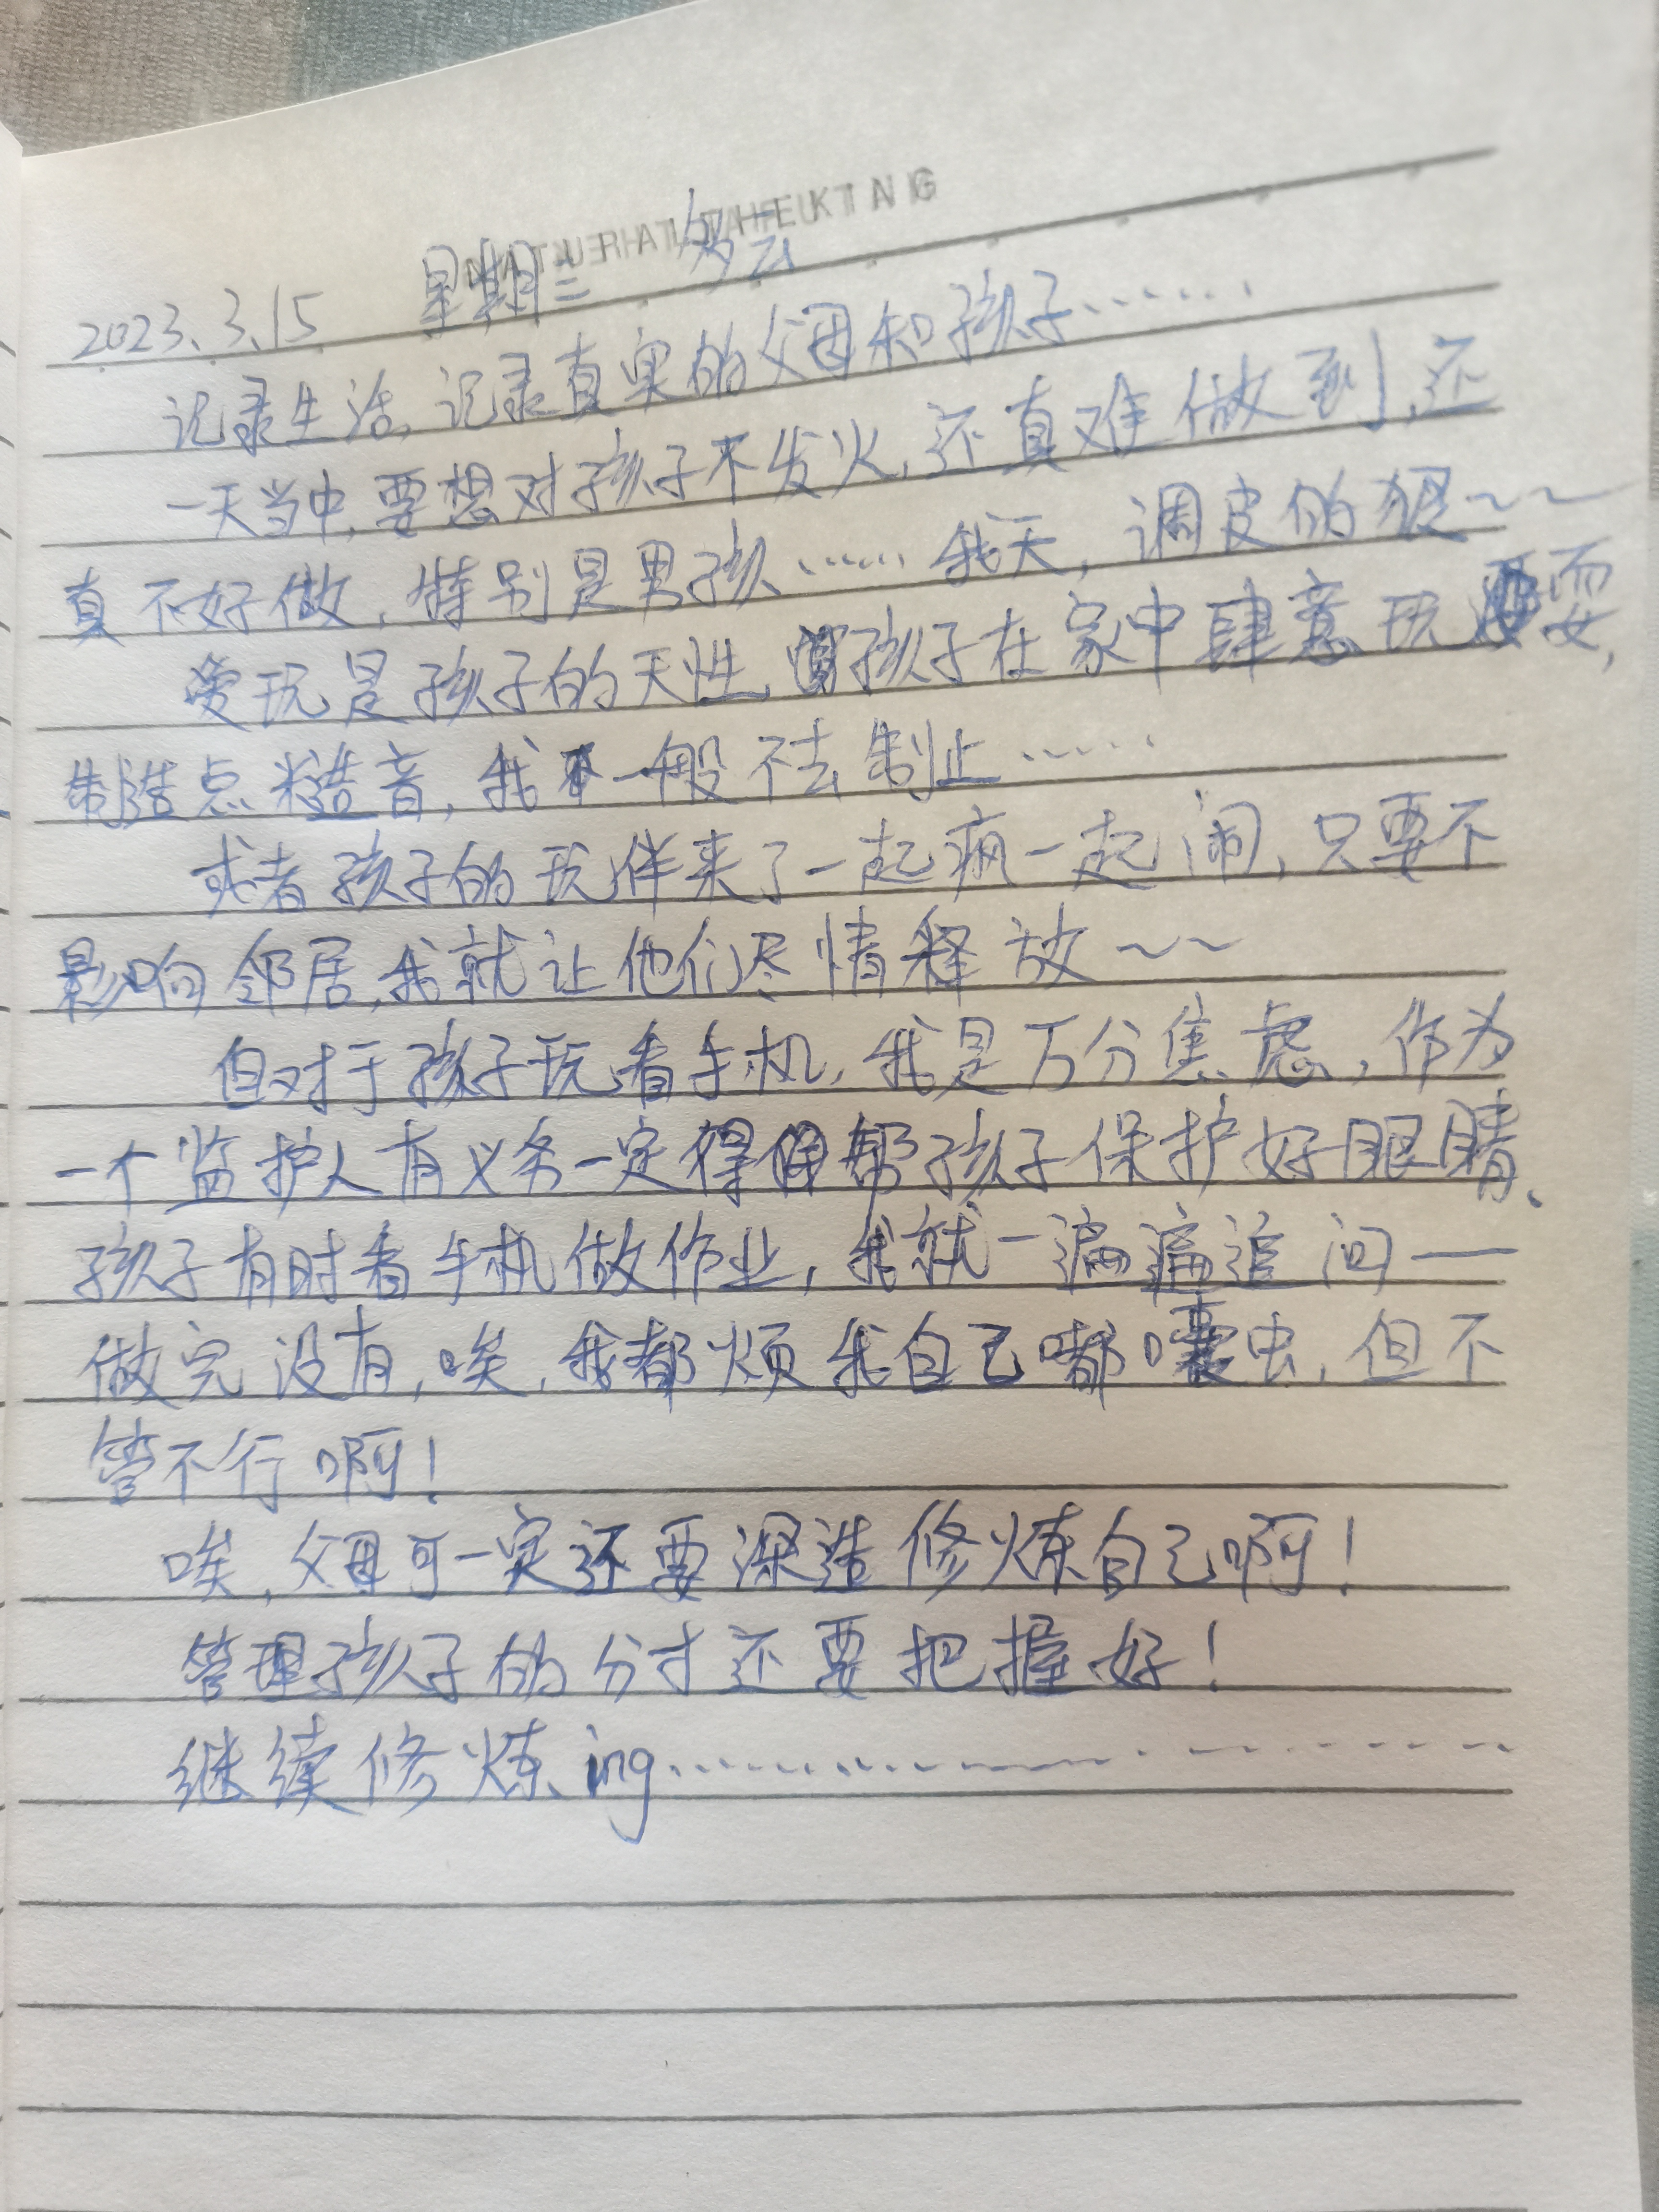 2023.3.15 星期三 多云
记录生活,记录真实的父母和孩子……
一天当中,要想对孩子不发火,还真难做到,还
真不好做,特别是男孩……我天,调皮的狠~~
爱玩是孩子的天性,孩子在家中肆意玩耍,
制造点糙音,我一般不去制止……
或者孩子的玩伴来了一起疯一起闹,只要不
影响邻居,我就让他们尽情释放~~
但对于孩子玩看手机,我是万分焦虑,作为
一个监护人有义务一定得帮孩子保护好眼睛、
孩子有时看手机做作业,我就一遍遍追问——
做完没有,唉,我都烦我自己嘟囔虫,但不
管不行啊!
唉,父母可一定还要深造修炼自己啊!
管理孩子的分寸还要把握好!
继续修炼ing……………